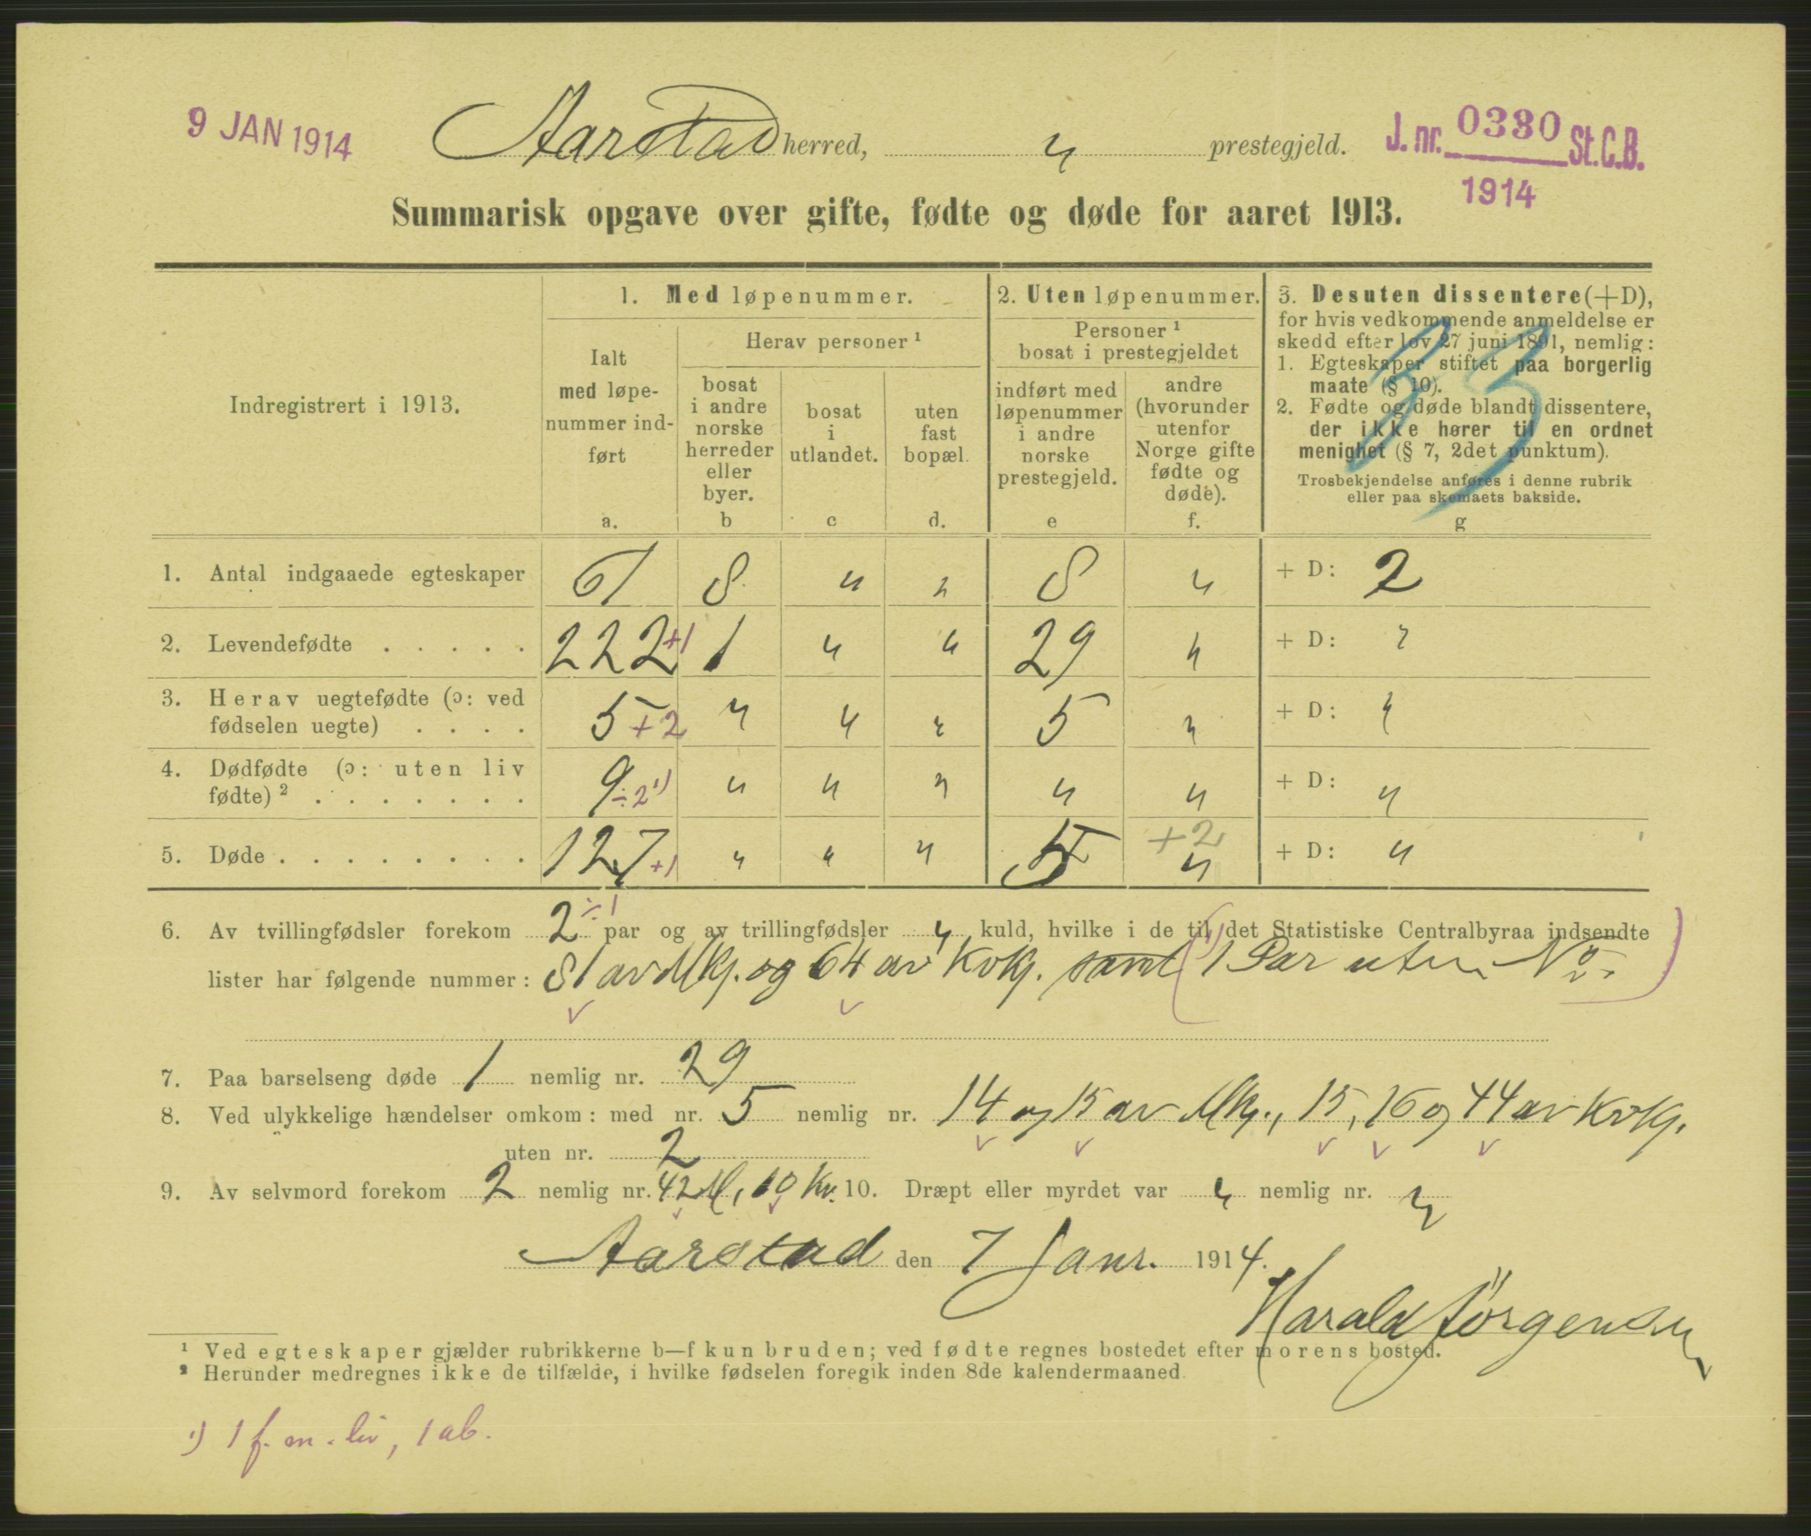 9 JAN 1914
Aarstad herred, " prestegjeld.
J. nr. 0330 St. C. B.
1914
Summarisk opgave over gifte, fødte og døde for aaret 1913.
Indregistrert i 1913.
1. Med løpenummer.
Ialt med løpenummer indført
a.
Herav personer ¹
bosat i andre norske herreder eller byer.
b
bosat i utlandet.
c
uten fast bopæl.
d.
2. Uten løpenummer.
Personer ¹ bosat i prestegjeldet
indført med løpenummer i andre norske prestegjeld.
e
andre (hvorunder utenfor Norge gifte fødte og døde).
f.
3. Desuten dissentere (+D),
for hvis vedkommende anmeldelse er
skedd efter lov 27 juni 1891, nemlig:
1. Egteskaper stiftet paa borgerlig
maate (§ 10).
2. Fødte og døde blandt dissentere,
der ikke hører til en ordnet
menighet (§ 7, 2det punktum).
Trosbekjendelse anføres i denne rubrik
eller paa skemaets bakside.
g
33
1. Antal indgaaede egteskaper 61 8 " " 8 " + D: 2
2. Levendefødte . . . . . 222 +1 1 " " 29 " + D: "
3. Herav uegtefødte (ɔ: ved
fødselen uegte) . . . . 5 +2 " " " 5 " + D: "
4. Dødfødte (ɔ: uten liv
fødte) ² . . . . . . . 9 ÷2 ¹) " " " " " + D: "
5. Døde . . . . . . . . 127 +1 " " " 5 +2 " + D: "
6. Av tvillingfødsler forekom 2 ÷1 par og av trillingfødsler " kuld, hvilke i de til det Statistiske Centralbyraa indsendte
lister har følgende nummer: 81 av Mkj. og 64 av Kvkj. samt (1 Par uten No.)
7. Paa barselseng døde 1 nemlig nr. 29
8. Ved ulykkelige hændelser omkom: med nr. 5 nemlig nr. 14 og 15 av Mkj., 15, 16 og 44 av Kvkj.
uten nr. 2
9. Av selvmord forekom 2 nemlig nr. 42 M, 10 Kv. 10. Dræpt eller myrdet var " nemlig nr. "
Aarstad den 7 Janr. 1914.
Harald Jörgensen
¹ Ved egteskaper gjælder rubrikkerne b—f kun bruden; ved fødte regnes bostedet efter morens bosted.
² Herunder medregnes ikke de tilfælde, i hvilke fødselen foregik inden 8de kalendermaaned
¹) 1 f. m. liv, 1 ab.